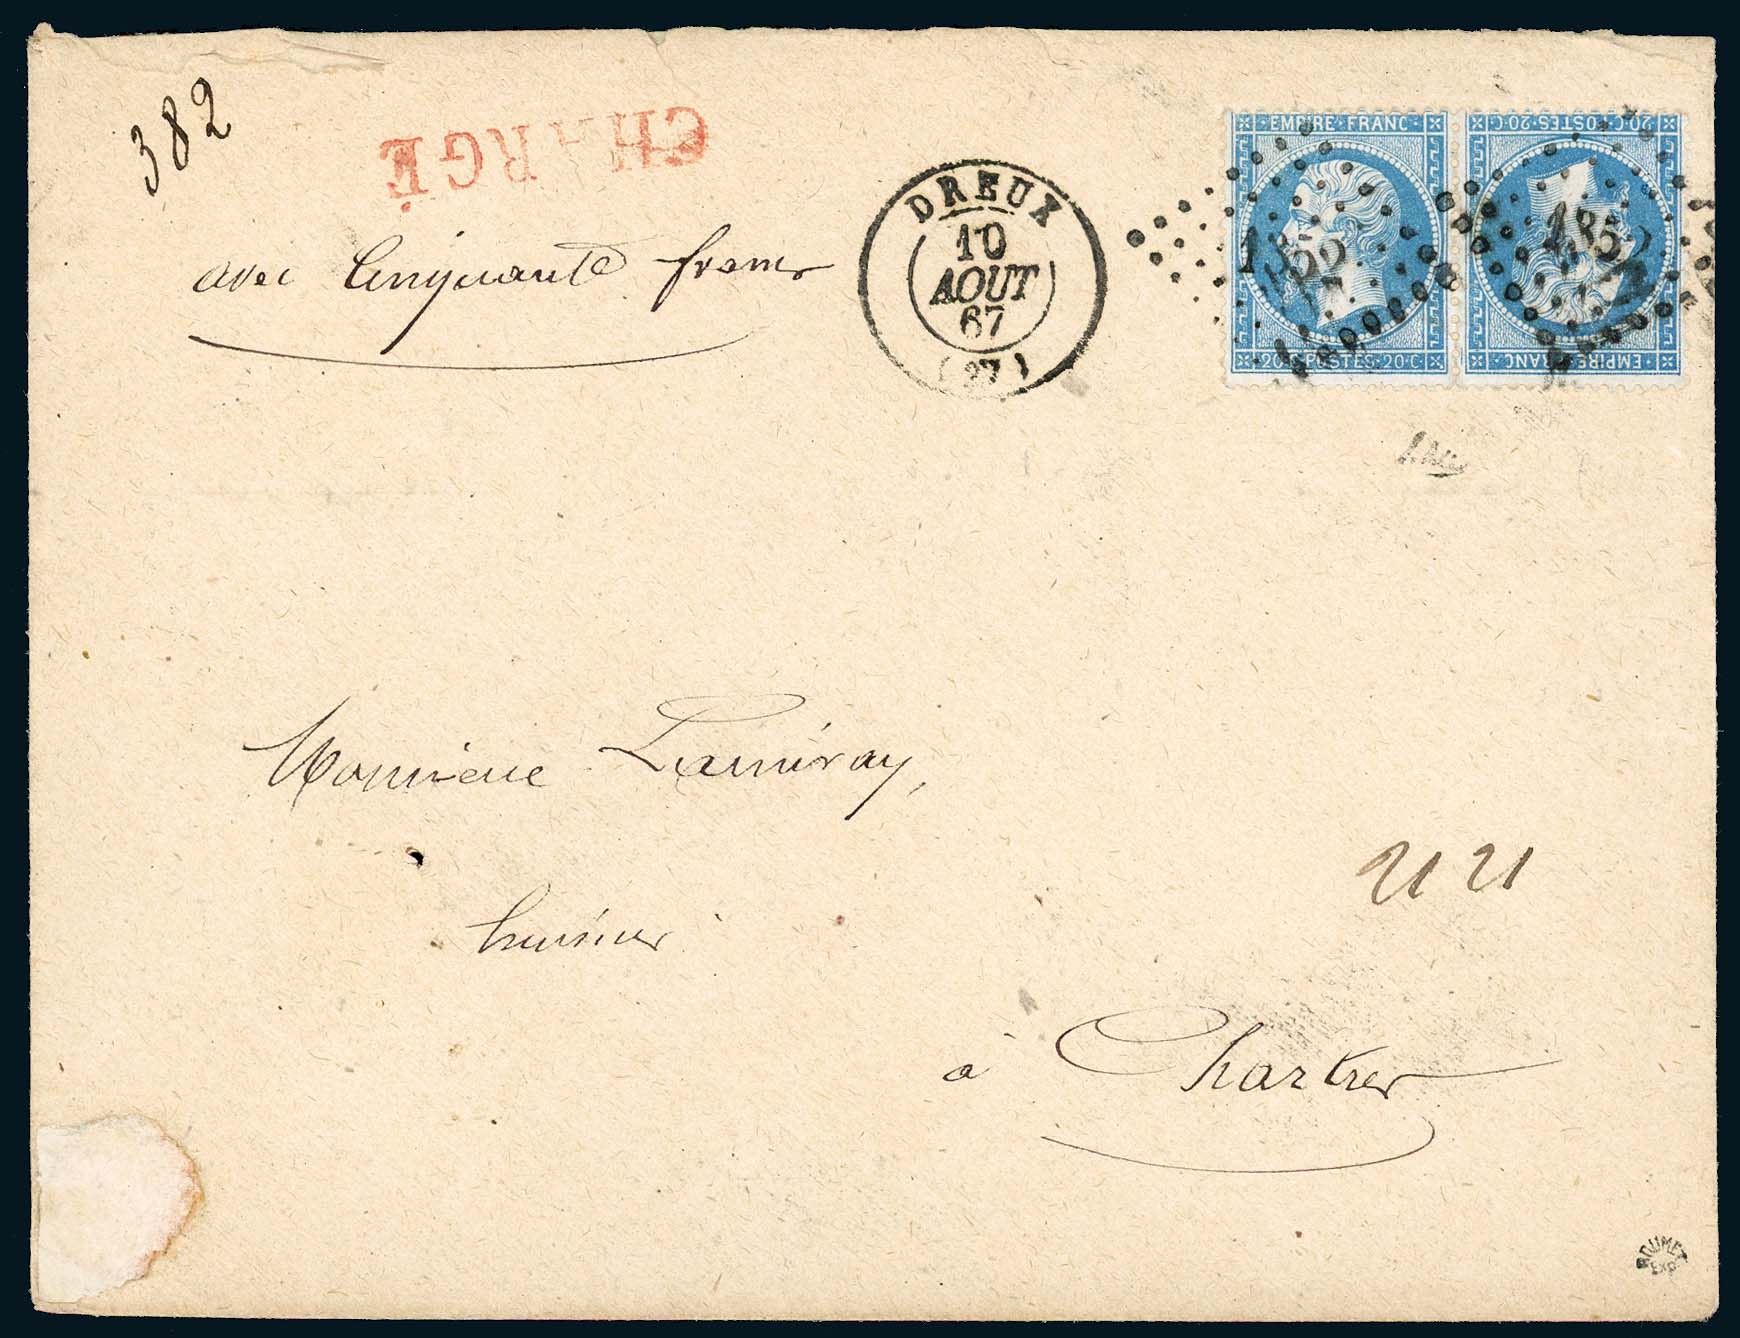 382
CHARGÉ
avec Cinquante francs
DREUX
10
AOUT
67
(27)
EMPIRE FRANC
20 C POSTES 20 C
20 C POSTES 20 C
EMPIRE FRANC
1352
Monsieur Lamiray,
huissier
21 21
à Chartres
ROUMET
EXP